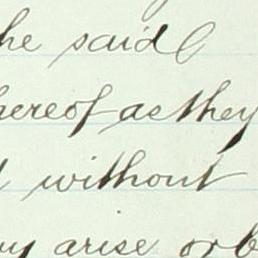 he said
hereof as they
without
arise or b